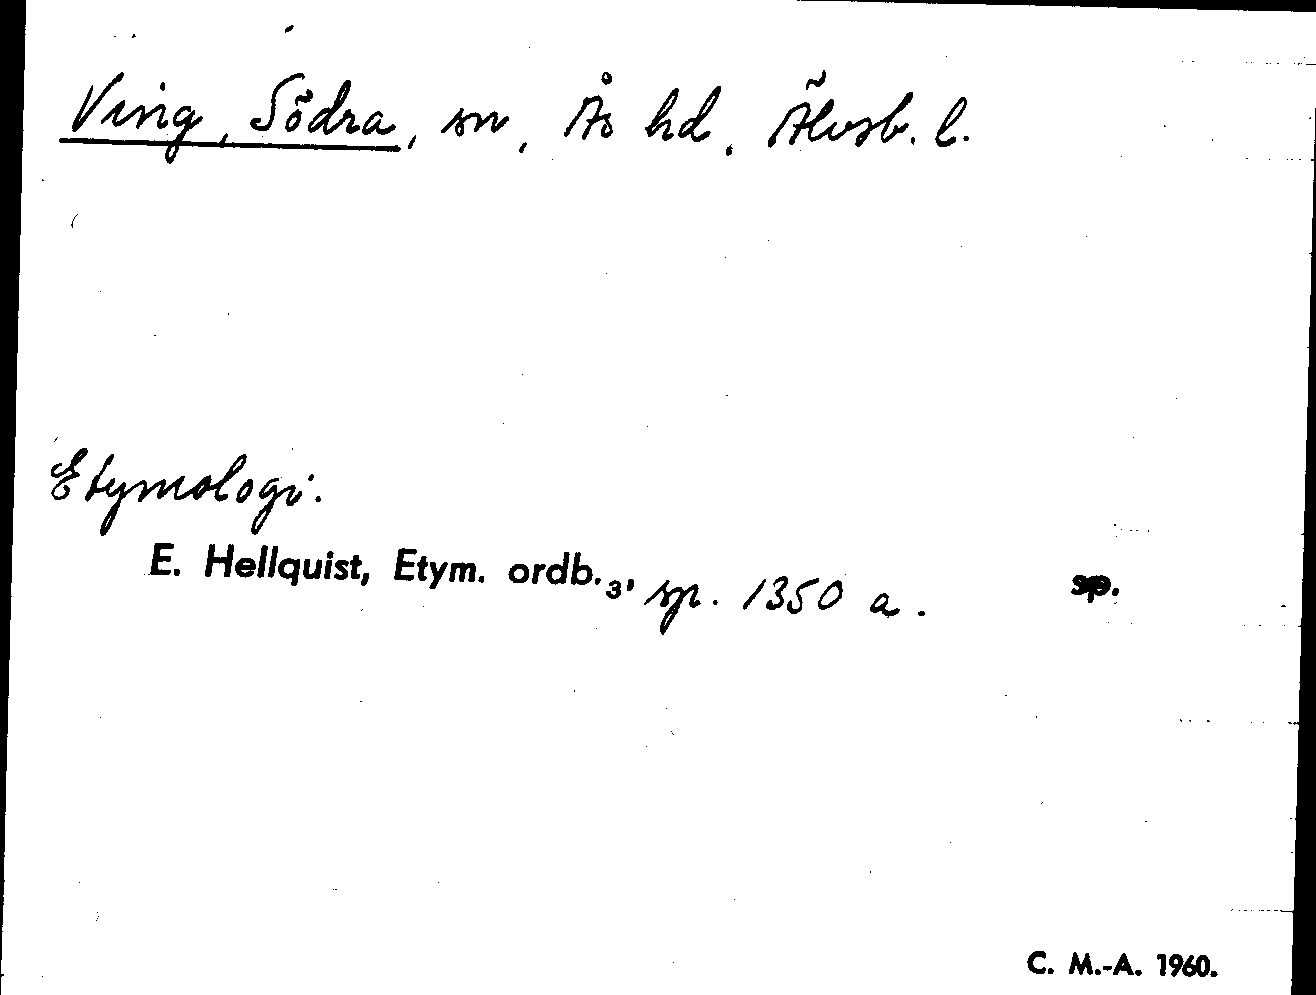 Ving, Södra, sn, Ås hd, Älvsb. l.
Etymologi.
E. Hellquist, Etym. ordb.₃, sp. 1350 a. sp.
C. M.-A. 1960.